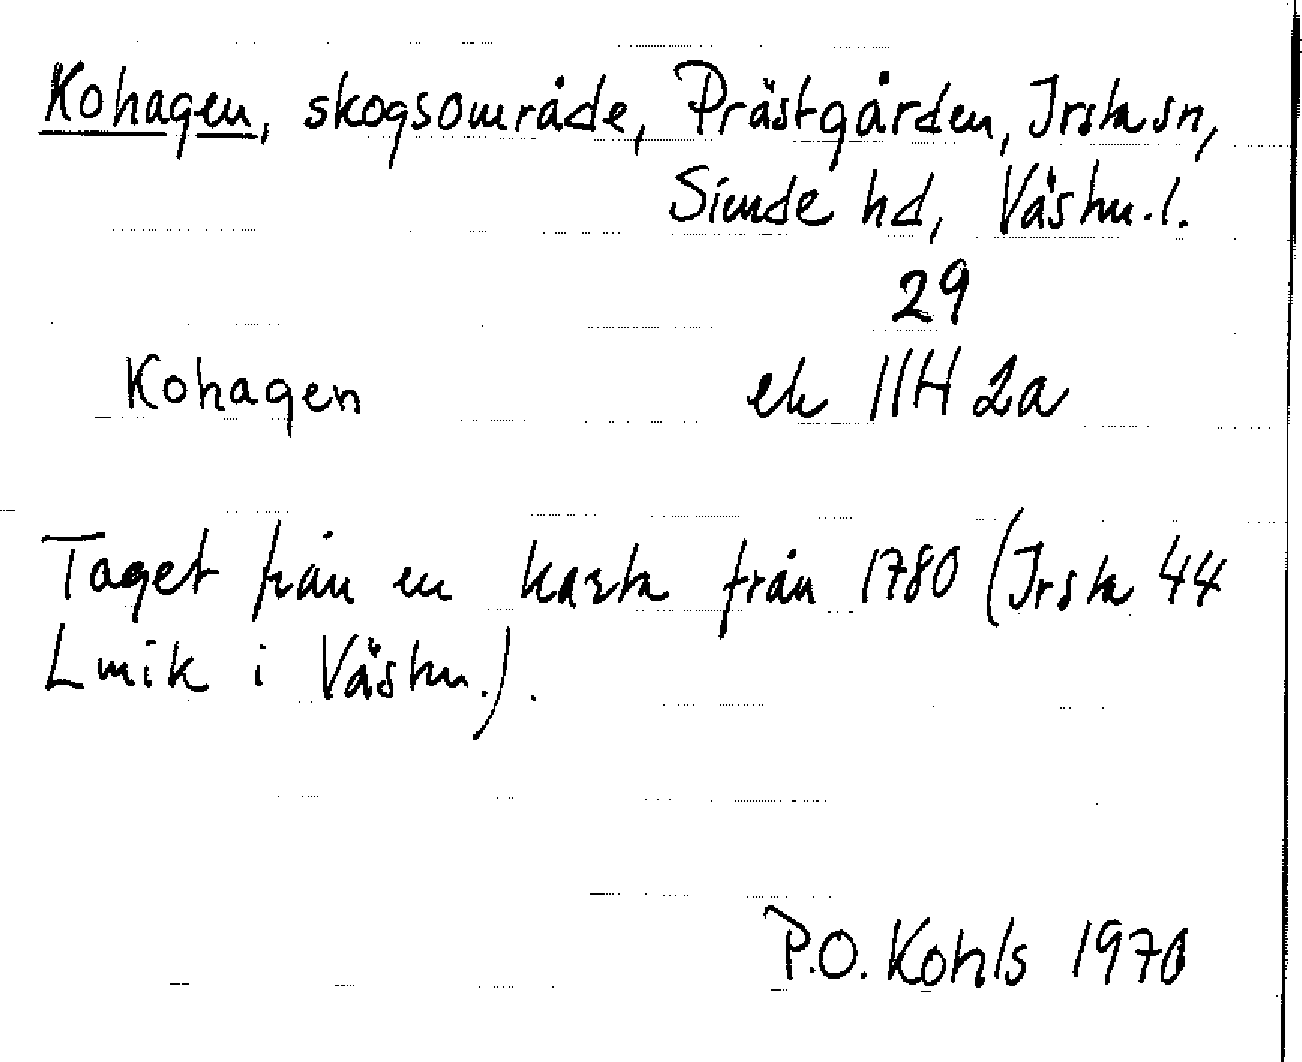 Kohagen, skogsområde, Prästgården, Irsta sn,
Siende hd, Västm. l.
29
Kohagen ek 11H 2a
Taget från en karta från 1780 (Irsta 44
Lmik i Västm.).
P.O. Kohls 1970